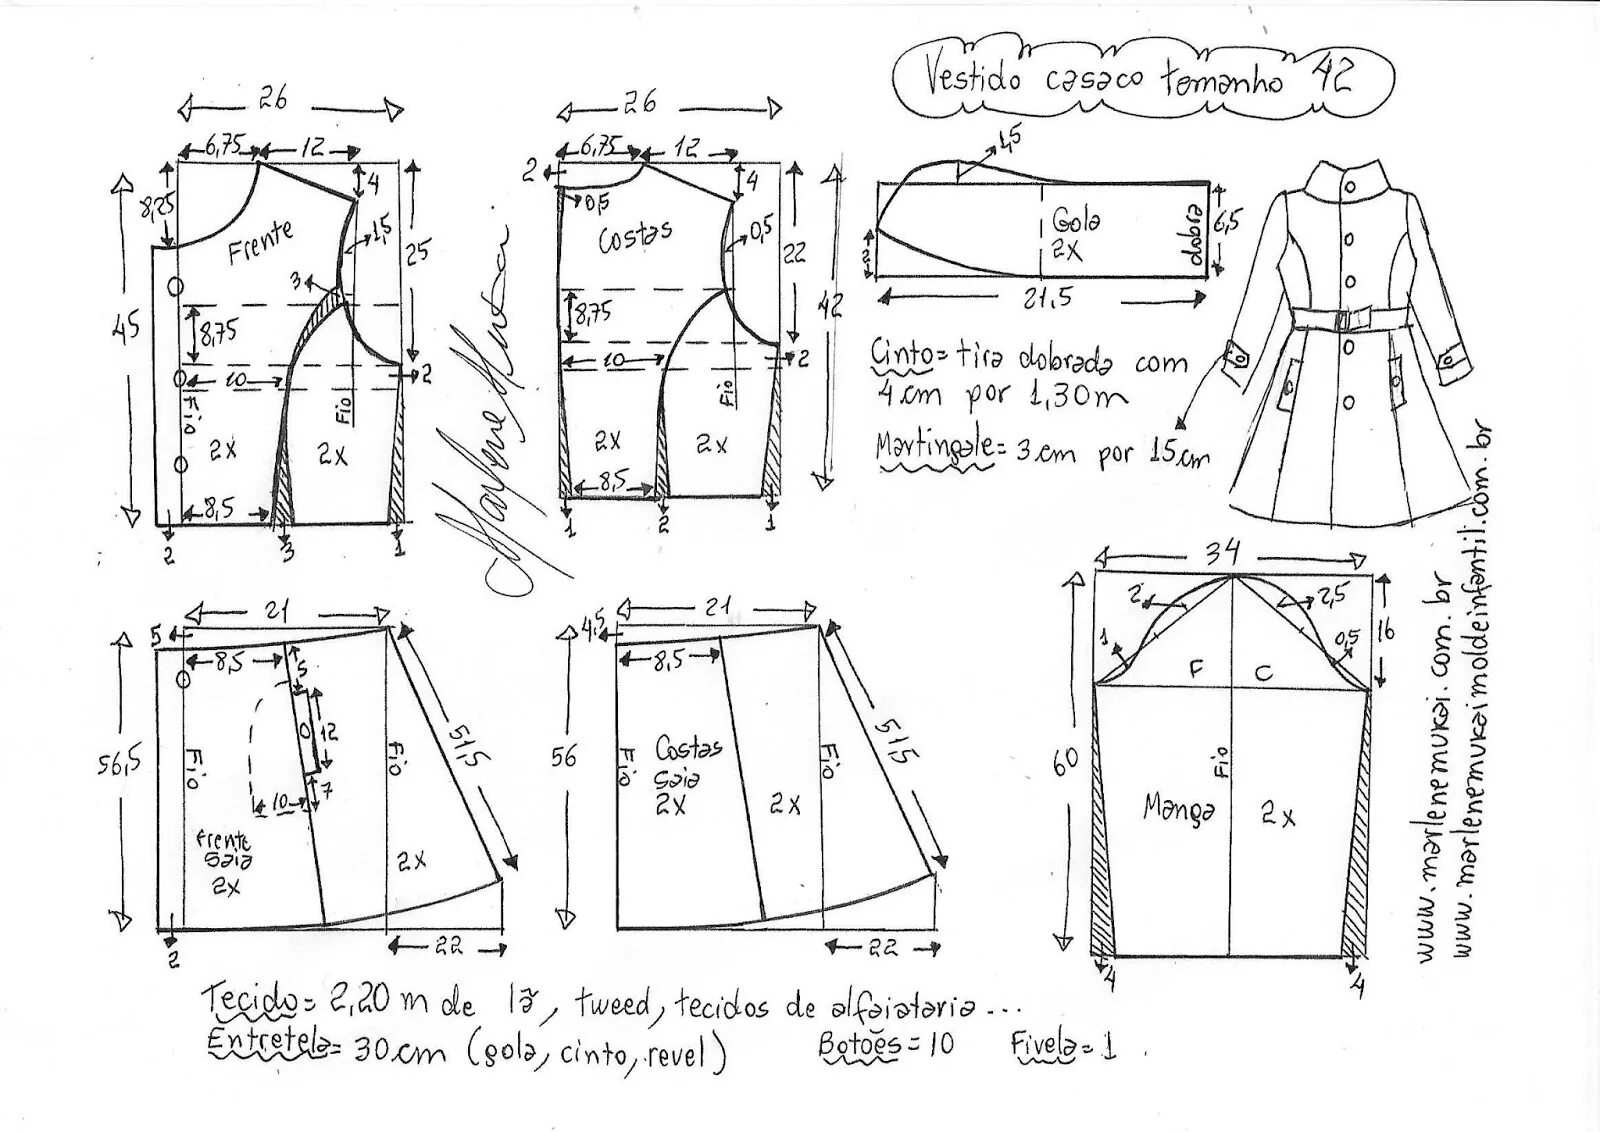 Vestido casaco tamanho 42
26
6,75
12
4
8,25
Frente
1,5
25
45
3
8,75
10
2
Fio
Fio
2x
2x
8,5
2
3
1
26
6,75
12
2
0,5
4
Costas
0,5
22
42
8,75
10
2
Fio
2x
2x
8,5
1
2
1
Marlene Mukai
1,5
Gola
2x
dobra
6,5
2
21,5
Cinto= tira dobrada com
4cm por 1,30m
Martingale= 3cm por 15cm
21
5
8,5
5
12
7
10
56,5
51,5
Fio
Fio
Frente
saia
2x
2x
2
22
21
4,5
8,5
56
51,5
Fio
Costas
saia
2x
2x
Fio
22
34
2
2,5
1
0,5
16
F
C
60
Fio
Manga
2x
4
4
www.marlenemukai.com.br
www.marlenemukaimoldeinfantil.com.br
Tecido= 2,20 m de lã, tweed, tecidos de alfaiataria...
Entretela= 30cm (gola, cinto, revel)
Botões=10
Fivela=1.